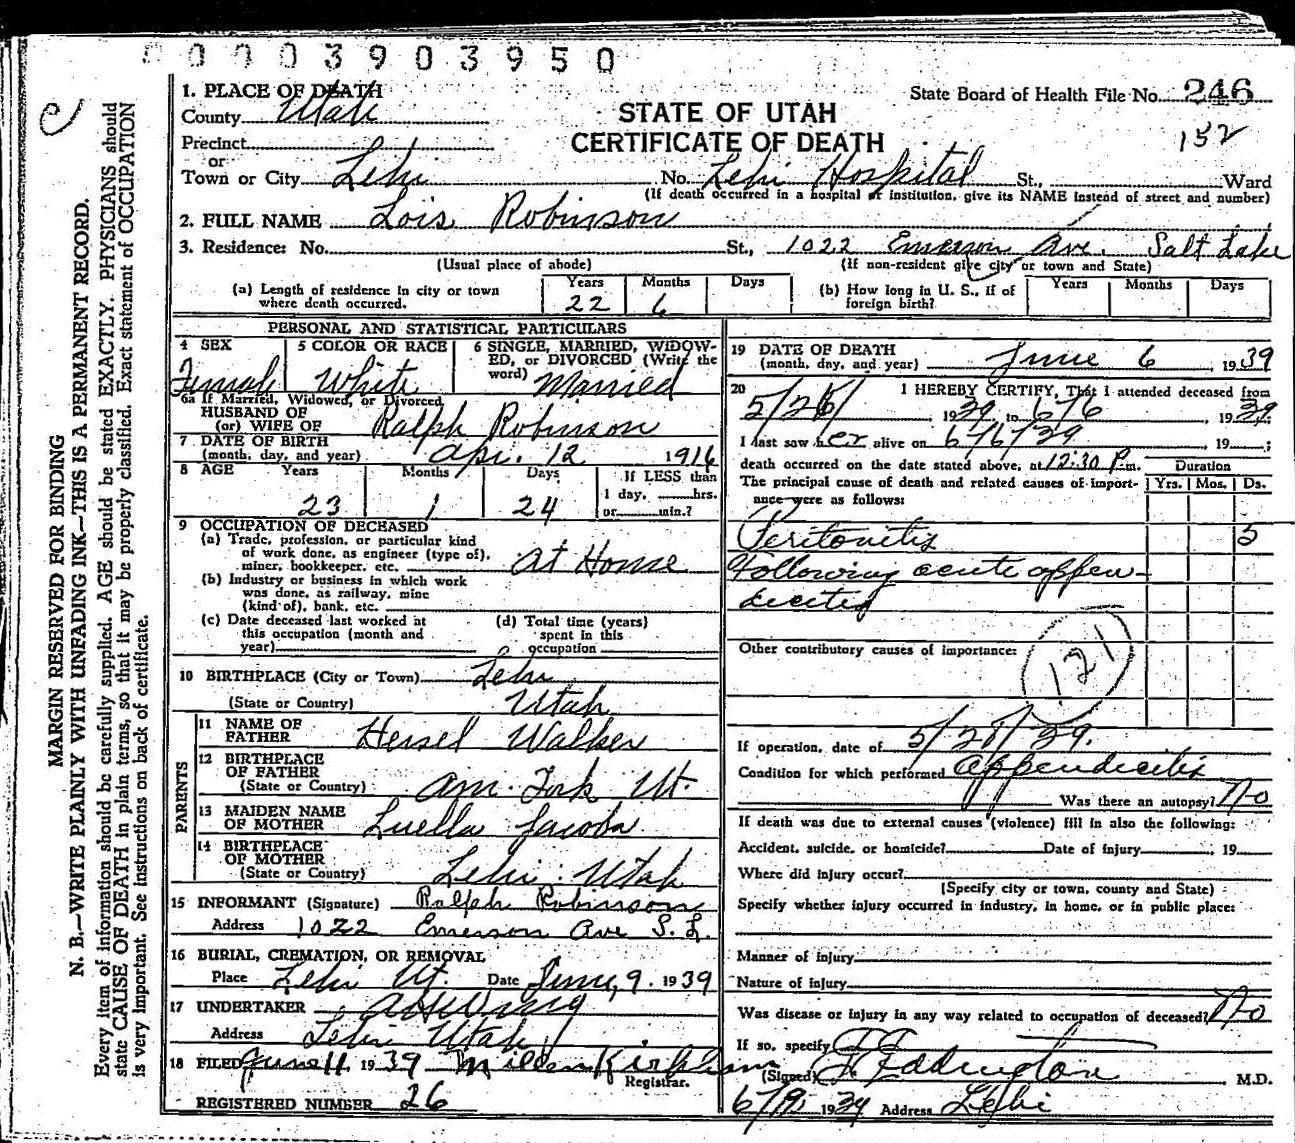 0003903950
1. PLACE OF DEATH
County Utah
State Board of Health File No. 246
STATE OF UTAH
CERTIFICATE OF DEATH
152
Precinct
or
Town or City Lehi No. Lehi Hospital St., Ward
(If death occurred in a hospital or institution, give its NAME instead of street and number)
2. FULL NAME Lois Robinson
3. Residence: No. St., 1022 Emerson Ave. Salt Lake
(Usual place of abode) (If non-resident give city or town and State)
(a) Length of residence in city or town where death occurred. Years 22 Months 6 Days
(b) How long in U. S., if of foreign birth? Years Months Days
PERSONAL AND STATISTICAL PARTICULARS
4 SEX Female
5 COLOR OR RACE White
6 SINGLE, MARRIED, WIDOWED, or DIVORCED (Write the word) Married
6a If Married, Widowed, or Divorced
HUSBAND OF
(or) WIFE OF Ralph Robinson
7 DATE OF BIRTH
(month, day, and year) Apr. 12 1916
8 AGE Years 23 Months 1 Days 24
If LESS than
1 day, hrs.
or min.?
9 OCCUPATION OF DECEASED
(a) Trade, profession, or particular kind
of work done, as engineer (type of),
miner, bookkeeper, etc. At Home
(b) Industry or business in which work
was done, as railway, mine
(kind of), bank, etc.
(c) Date deceased last worked at
this occupation (month and
year)
(d) Total time (years)
spent in this
occupation
10 BIRTHPLACE (City or Town) Lehi
(State or Country) Utah
PARENTS
11 NAME OF
FATHER Hersel Walker
12 BIRTHPLACE
OF FATHER
(State or Country) Am. Fork Ut.
13 MAIDEN NAME
OF MOTHER Luella Jacobs
14 BIRTHPLACE
OF MOTHER
(State or Country) Lehi Utah
15 INFORMANT (Signature) Ralph Robinson
Address 1022 Emerson Ave S. L.
16 BURIAL, CREMATION, OR REMOVAL
Place Lehi Ut. Date June 9. 1939
17 UNDERTAKER
Address Lehi Utah
18 FILED June 11 1939 Kirkham
Registrar.
REGISTERED NUMBER 26
19 DATE OF DEATH
(month, day, and year) June 6, 1939
20 I HEREBY CERTIFY, That I attended deceased from
5/26/ 1939 to 6/6, 1939.
I last saw her alive on 6/6/39 19 ;
death occurred on the date stated above, at 12:30 P.m.
The principal cause of death and related causes of importance were as follows:
Duration
Yrs. Mos. Ds.
Peritonitis 5
Following acute appen-
dicitis
Other contributory causes of importance:
121
If operation, date of 5/28/39.
Condition for which performed Appendicitis
Was there an autopsy? No
If death was due to external causes (violence) fill in also the following:
Accident, suicide, or homicide? Date of injury , 19
Where did injury occur?
(Specify city or town, county and State)
Specify whether injury occurred in industry, in home, or in public place:
Manner of injury
Nature of injury
Was disease or injury in any way related to occupation of deceased? No
If so, specify
(Signed) Eddington M.D.
1939 Address Lehi
MARGIN RESERVED FOR BINDING
N. B.—WRITE PLAINLY WITH UNFADING INK—THIS IS A PERMANENT RECORD.
Every item of information should be carefully supplied. AGE should be stated EXACTLY. PHYSICIANS should
state CAUSE OF DEATH in plain terms, so that it may be properly classified. Exact statement of OCCUPATION
is very important. See instructions on back of certificate.